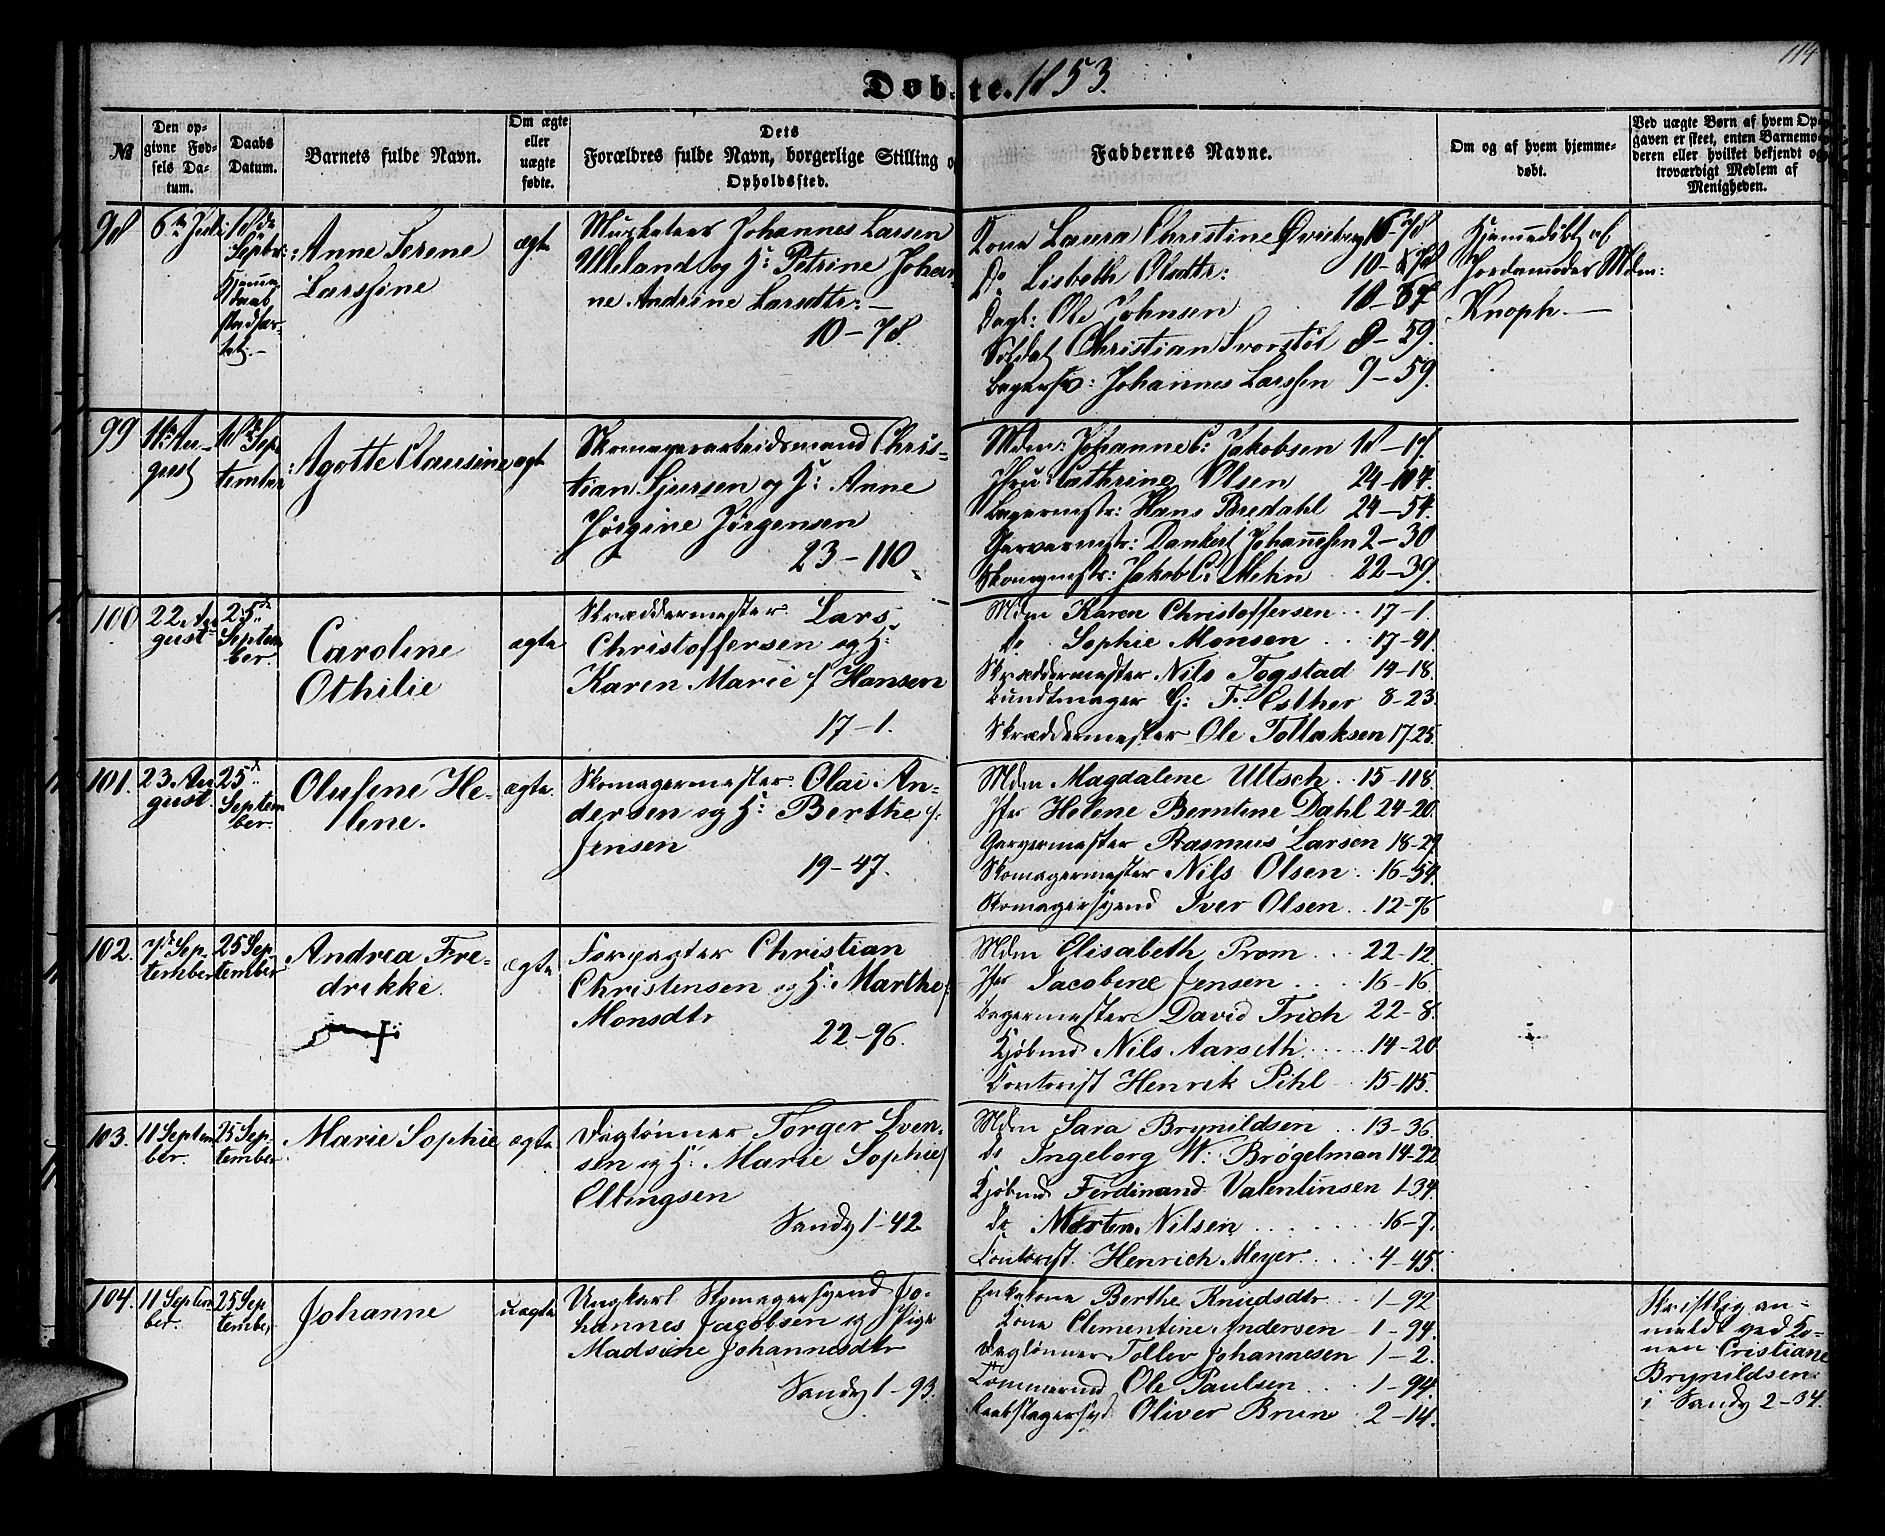 114
Døbte. 1853.
№
Den opgivne Fødsels Datum.
Daabs Datum.
Barnets fulde Navn.
Om ægte eller uægte fødte.
Dets Forældres fulde Navn, borgerlige Stilling og Opholdssted.
Faddernes Navne.
Om og af hvem hjemmedøbt.
Ved uægte Børn af hvem Opgaven er skeet, enten Barnemoderen eller hvilket bekjendt og troværdigt Medlem af Menigheden.
98
6te Juli
18de Septbr:
Hjemmedaab stadfæstet.
Anne Serene
Larssine
ægte
Musketeer Johannes Larsen
Ulleland og H: Petrine Johan-
ne Andrine Larsdtr:
10-78.
Kone Laura Christine 10-78
Do Lisbeth Olsdtr:
Dagl: Ole Johnsen
Soldat Christian 8-59.
Bagersv: Johannes Larssen 9-59.
Hjemmedøbt af
Jordemoder Mdm:
Knoph.
99
August
18de Sep
tember
Agotte Clausine
ægte
Skomagerarbeidsmand Chris-
tian Sjursen og H: Anne
Jørgine Jørgensen
23-110
Mdm: Johanne C: Jakobsen
Jfru Cathrine Olsen 24-104.
Bagermstr: Hans Bredahl 24-54.
Garvermstr: Dankert Johannesen 2-30
Skomgmstr: Jakob C: Mehn 22-39.
100
22. Au
gust
25de
Septem
ber.
Caroline
Othilie
ægte
Skræddermester Lars
Christoffersen og H:
Karen Marie f Hansen
17-1.
Mdm Karen Christoffersen 17-1
do Sophie Monsen 17-41.
Skræddermester Nils Togstad 14-18.
Bundtmager G: F. Esther 8-23.
Skræddermester Ole Tollaksen 17-25.
101.
23. Au
gust.
25de
Septem
ber.
Olufene He-
lene.
ægte.
Skomagermester Olai An-
dersen og H: Berthe f
Jensen
19-47.
Mdm Magdalene Ultsch 15-118.
Jfr Helene Berntine Dahl 24-20.
Garvermester Rasmus Larsen 18-29
Skomagermester Nils Olsen 16-54.
Skomagersvend Iver Olsen 12-76
102.
7de Sep-
tember
25 Sep-
tember
Andrea Fre-
drikke.
ægte
Forpagter Christian
Christensen og H: Marthe
Monsdtr
22-96.
Mdm Elisabeth Prom 22-12.
Jfr Jacobine Jensen 16-16.
Bagermester David Frich 22-8.
Kjøbmd Nils Aarseth 14-20
Contorist Henrik Pihl 15-115.
103.
11 Septem
ber.
25 Sep-
tember
Marie Sophie
ægte
Daglønner Torger Sven-
sen og H: Marie Sophie f
Ellingsen
Sandv 1-42
Mdm Sara Brynildsen 13-36.
do Ingeborg W. Brøgelman 14-22
Kjøbmd Ferdinand Valentinsen 1-34.
do Morten Nilsen 16-7.
Contorist. Henrich Meyer 4-45.
104.
11 Septem
ber.
25 Sep
tember
Johanne
uægte
Ungkarl Skomagersvend Jo-
hannes Jacobsen og Pige
Madsine Johannesdtr
Sandv 1-93.
Enkekone Berthe Knudsdtr 1-92
Kone Clementine Andersen 1-94.
Daglønner Tollev Johannesen 1-2.
Tømmermd Ole Paulsen 1-94.
Oliver Brun 2-14.
Skriftlig an-
meldt ved Ko-
nen Cristiane
Brynildsen
i Sandv 2-34.